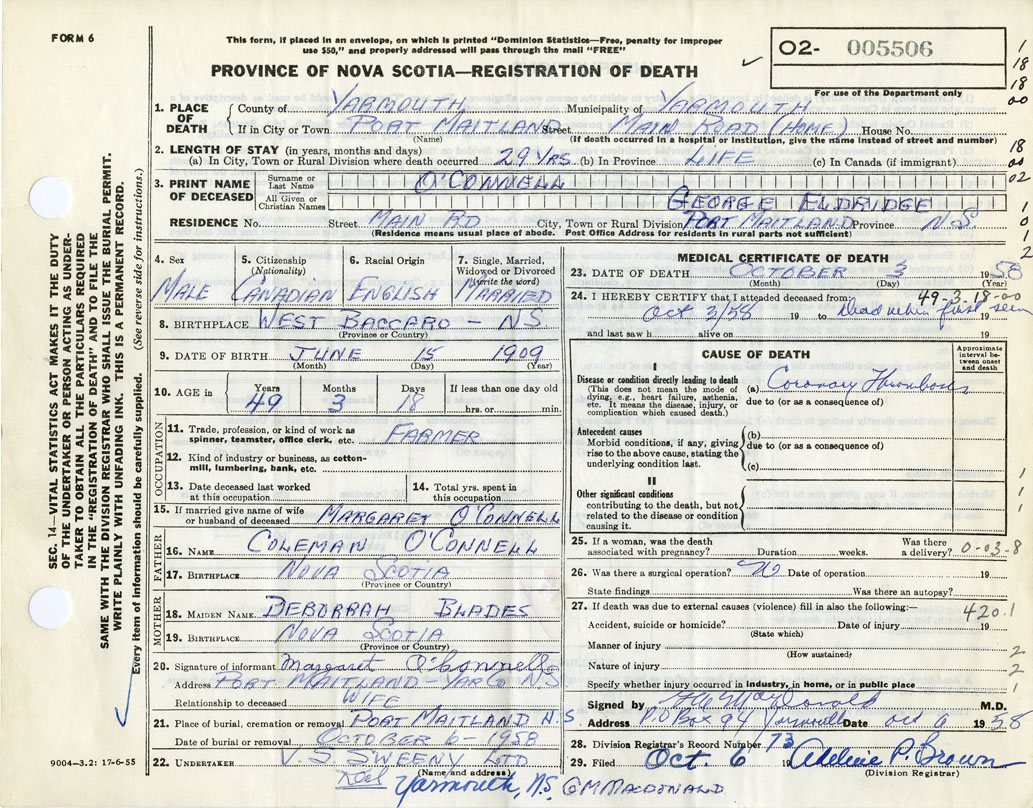 FORM 6
This form, if placed in an envelope, on which is printed "Dominion Statistics—Free, penalty for improper
use $50," and properly addressed will pass through the mail "FREE"
O2- 005506
PROVINCE OF NOVA SCOTIA—REGISTRATION OF DEATH
For use of the Department only
1. PLACE OF DEATH
County of YARMOUTH Municipality of YARMOUTH
If in City or Town PORT MAITLAND Street MAIN ROAD (HOME) House No.
(Name) (If death occurred in a hospital or institution, give the name instead of street and number)
2. LENGTH OF STAY (in years, months and days)
(a) In City, Town or Rural Division where death occurred 29 YRS. (b) In Province LIFE (c) In Canada (if immigrant)
3. PRINT NAME OF DECEASED
Surname or Last Name O'CONNELL
All Given or Christian Names GEORGE ELDRIDGE
RESIDENCE No. Street MAIN RD City, Town or Rural Division PORT MAITLAND Province N.S.
(Residence means usual place of abode. Post Office Address for residents in rural parts not sufficient)
1
18
18
00
18
00
02
1
0
1
2
SEC. 14—VITAL STATISTICS ACT MAKES IT THE DUTY
OF THE UNDERTAKER OR PERSON ACTING AS UNDER-
TAKER TO OBTAIN ALL THE PARTICULARS REQUIRED
IN THE "REGISTRATION OF DEATH" AND TO FILE THE
SAME WITH THE DIVISION REGISTRAR WHO SHALL ISSUE THE BURIAL PERMIT.
WRITE PLAINLY WITH UNFADING INK. THIS IS A PERMANENT RECORD.
Every item of information should be carefully supplied. (See reverse side for instructions.)
4. Sex
MALE
5. Citizenship
(Nationality)
CANADIAN
6. Racial Origin
ENGLISH
7. Single, Married,
Widowed or Divorced
(write the word)
MARRIED
8. BIRTHPLACE WEST BACCARO - NS
(Province or Country)
9. DATE OF BIRTH JUNE 15 1909
(Month) (Day) (Year)
10. AGE in
Years Months Days If less than one day old
49 3 18 hrs. or min.
OCCUPATION
11. Trade, profession, or kind of work as
spinner, teamster, office clerk, etc. FARMER
12. Kind of industry or business, as cotton-
mill, lumbering, bank, etc.
13. Date deceased last worked
at this occupation
14. Total yrs. spent in
this occupation
15. If married give name of wife
or husband of deceased MARGARET O'CONNELL
FATHER
16. NAME COLEMAN O'CONNELL
17. BIRTHPLACE NOVA SCOTIA
(Province or Country)
MOTHER
18. MAIDEN NAME DEBORRAH BLADES
19. BIRTHPLACE NOVA SCOTIA
(Province or Country)
20. Signature of informant Margaret O'Connells
Address PORT MAITLAND - YAR CO N.S
Relationship to deceased WIFE
21. Place of burial, cremation or removal PORT MAITLAND N.S
Date of burial or removal OCTOBER 6 - 1958
22. UNDERTAKER V. S. SWEENY LTD
(Name and address)
Yarmouth, N.S.
GM MACDONALD
9004—3.2: 17-6-55
MEDICAL CERTIFICATE OF DEATH
23. DATE OF DEATH OCTOBER 3 1958
(Month) (Day) (Year)
24. I HEREBY CERTIFY that I attended deceased from: 49-3-18-00
Oct 3/58 19 to Dead when first seen
and last saw h alive on 19
CAUSE OF DEATH
Approximate
interval be-
tween onset
and death
I
Disease or condition directly leading to death
(This does not mean the mode of
dying, e.g., heart failure, asthenia,
etc. It means the disease, injury, or
complication which caused death.)
(a) Coronary Thrombosis
due to (or as a consequence of)
Antecedent causes
Morbid conditions, if any, giving
rise to the above cause, stating the
underlying condition last.
(b)
due to (or as a consequence of)
(c)
II
Other significant conditions
contributing to the death, but not
related to the disease or condition
causing it.
1
1
1
25. If a woman, was the death
associated with pregnancy? Duration weeks. Was there
a delivery? 0-03-8
26. Was there a surgical operation? No Date of operation 19
State findings Was there an autopsy?
27. If death was due to external causes (violence) fill in also the following:— 420.1
Accident, suicide or homicide? Date of injury 19
(State which)
Manner of injury 2
(How sustained)
Nature of injury 2
Specify whether injury occurred in industry, in home, or in public place 1
Signed by M.D.
Address P.O Box 94 Yarmouth Date Oct 6 1958
28. Division Registrar's Record Number 73
29. Filed Oct. 6 19 Adeline P. Brown
(Division Registrar)